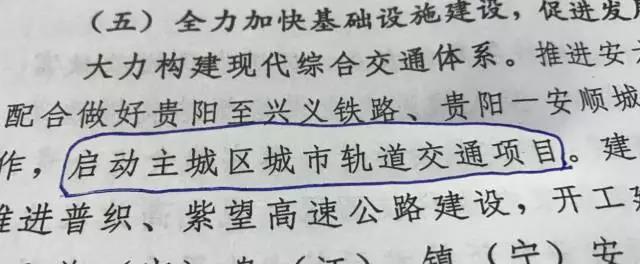 （五）全力加快基础设施建设，促进发
大力构建现代综合交通体系。推进安
配合做好贵阳至兴义铁路、贵阳一安顺城
作，启动主城区城市轨道交通项目。建
推进普织、紫望高速公路建设，开工
镇（宁）安